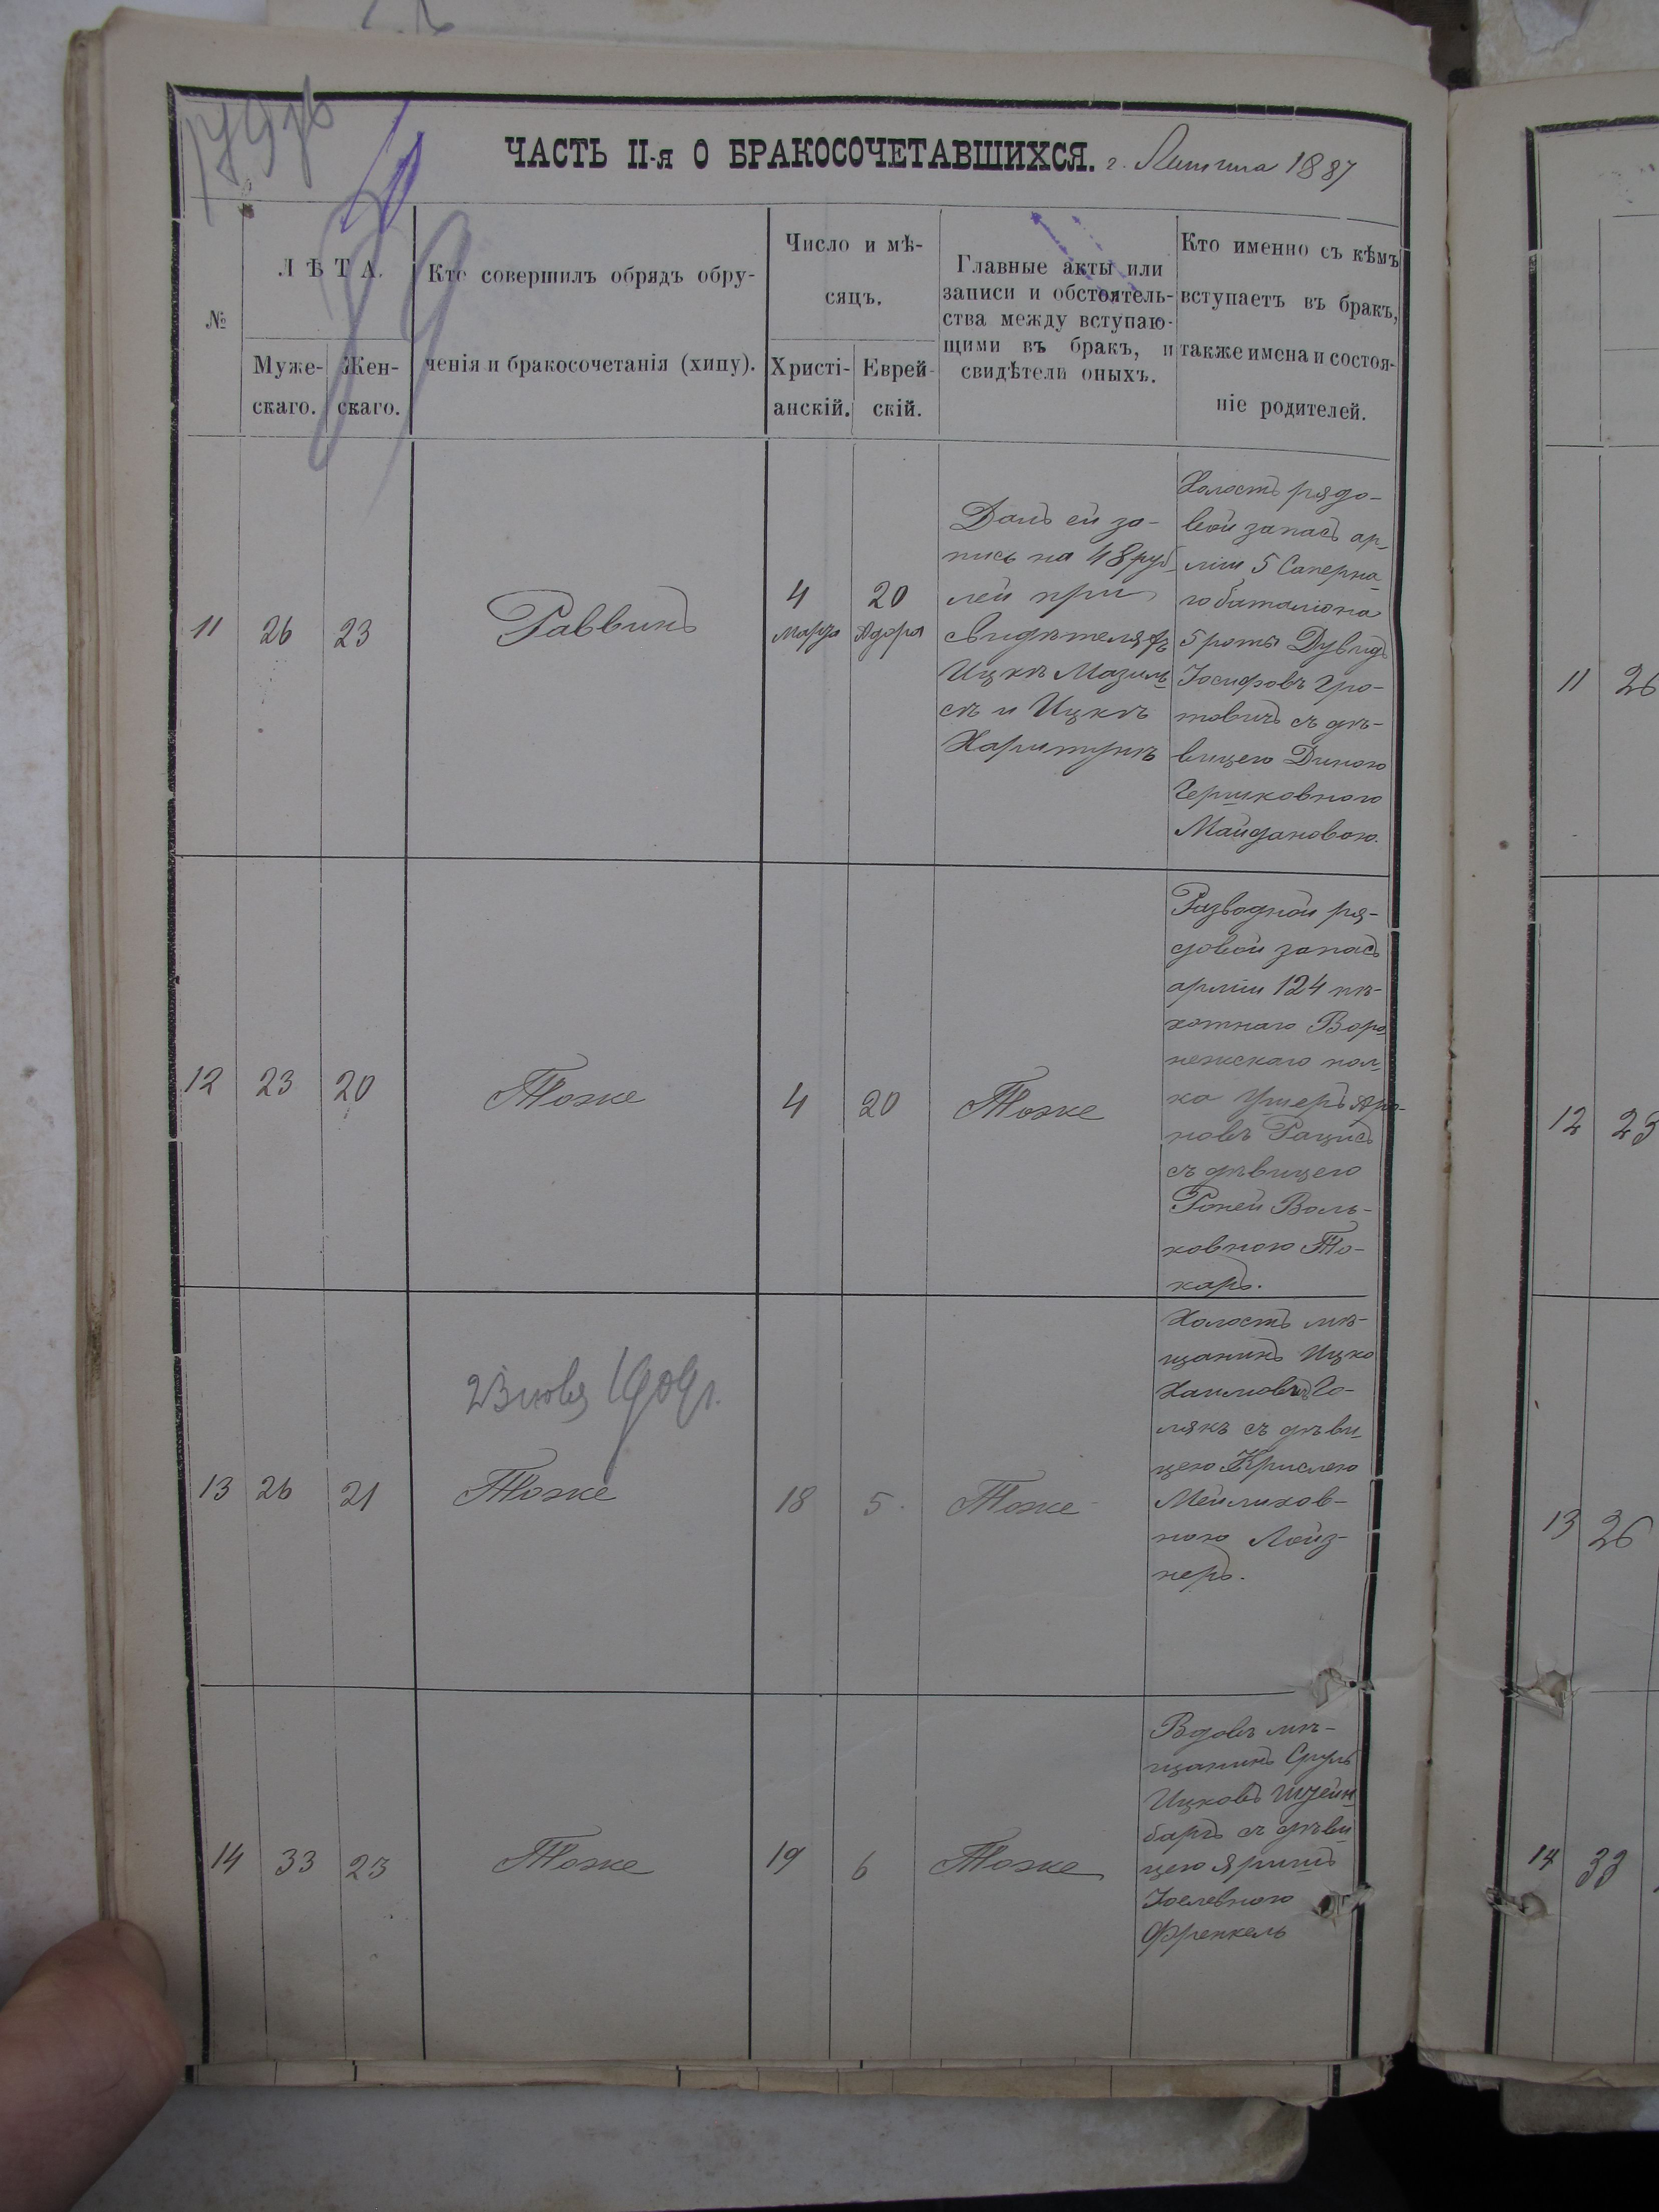 ЧАСТЬ II-я О БРАКОСОЧЕТАВШИХСЯ. г. 1887
№
ЛѢТА.
Муже-
скаго.
Жен-
скаго.
Кто совершилъ обрядъ обру-
ченія и бракосочетанія (хипу).
Число и мѣ-
сяцъ.
Христі-
анскій.
Еврей-
скій.
Главные акты или
записи и обстоятель-
ства между вступаю-
щими въ бракъ, и
свидѣтели оныхъ.
Кто именно съ кѣмъ
вступаетъ въ бракъ,
также имена и состоя-
ніе родителей.
11
26
23
Раввинъ
4
Марта
20
Адара
Далъ ей за-
пись на 48 руб
лей при
свидѣтеляхъ
Ицкѣ Мазуль
съ и Ицкѣ
Харитункѣ
Холостъ рядо-
вой запаса ар-
міи 5 Саперна
го баталіона
5 роты Дувидъ
Іосифовъ Гро-
мовичъ съ дѣ-
вицею Диною
Гершковною
Майдановою.
12
23
20
Тоже
4
20
Тоже
Разводной ря-
довой запаса
арміи 124 пѣ-
хотнаго Воро
нежскаго пол-
ка Ушеръ Аро-
новъ Рацисъ
съ дѣвицею
Ронею Воль-
ковною То-
каръ.
23 1909 г.
13
26
21
Тоже
18
5
Тоже
Холостъ мѣ-
щанинъ Ицко
Хаимовъ Го-
лякъ съ дѣви
цею Крислею
Мейлихов-
ною Лойз-
неръ.
14
33
23
Тоже
19
6
Тоже
Вдовъ мѣ-
щанинъ Сруль
Ицковъ Штейн
баргъ съ дѣви
цею
Іоелевною
Френкель
11 26
12 23
13 26
14 33